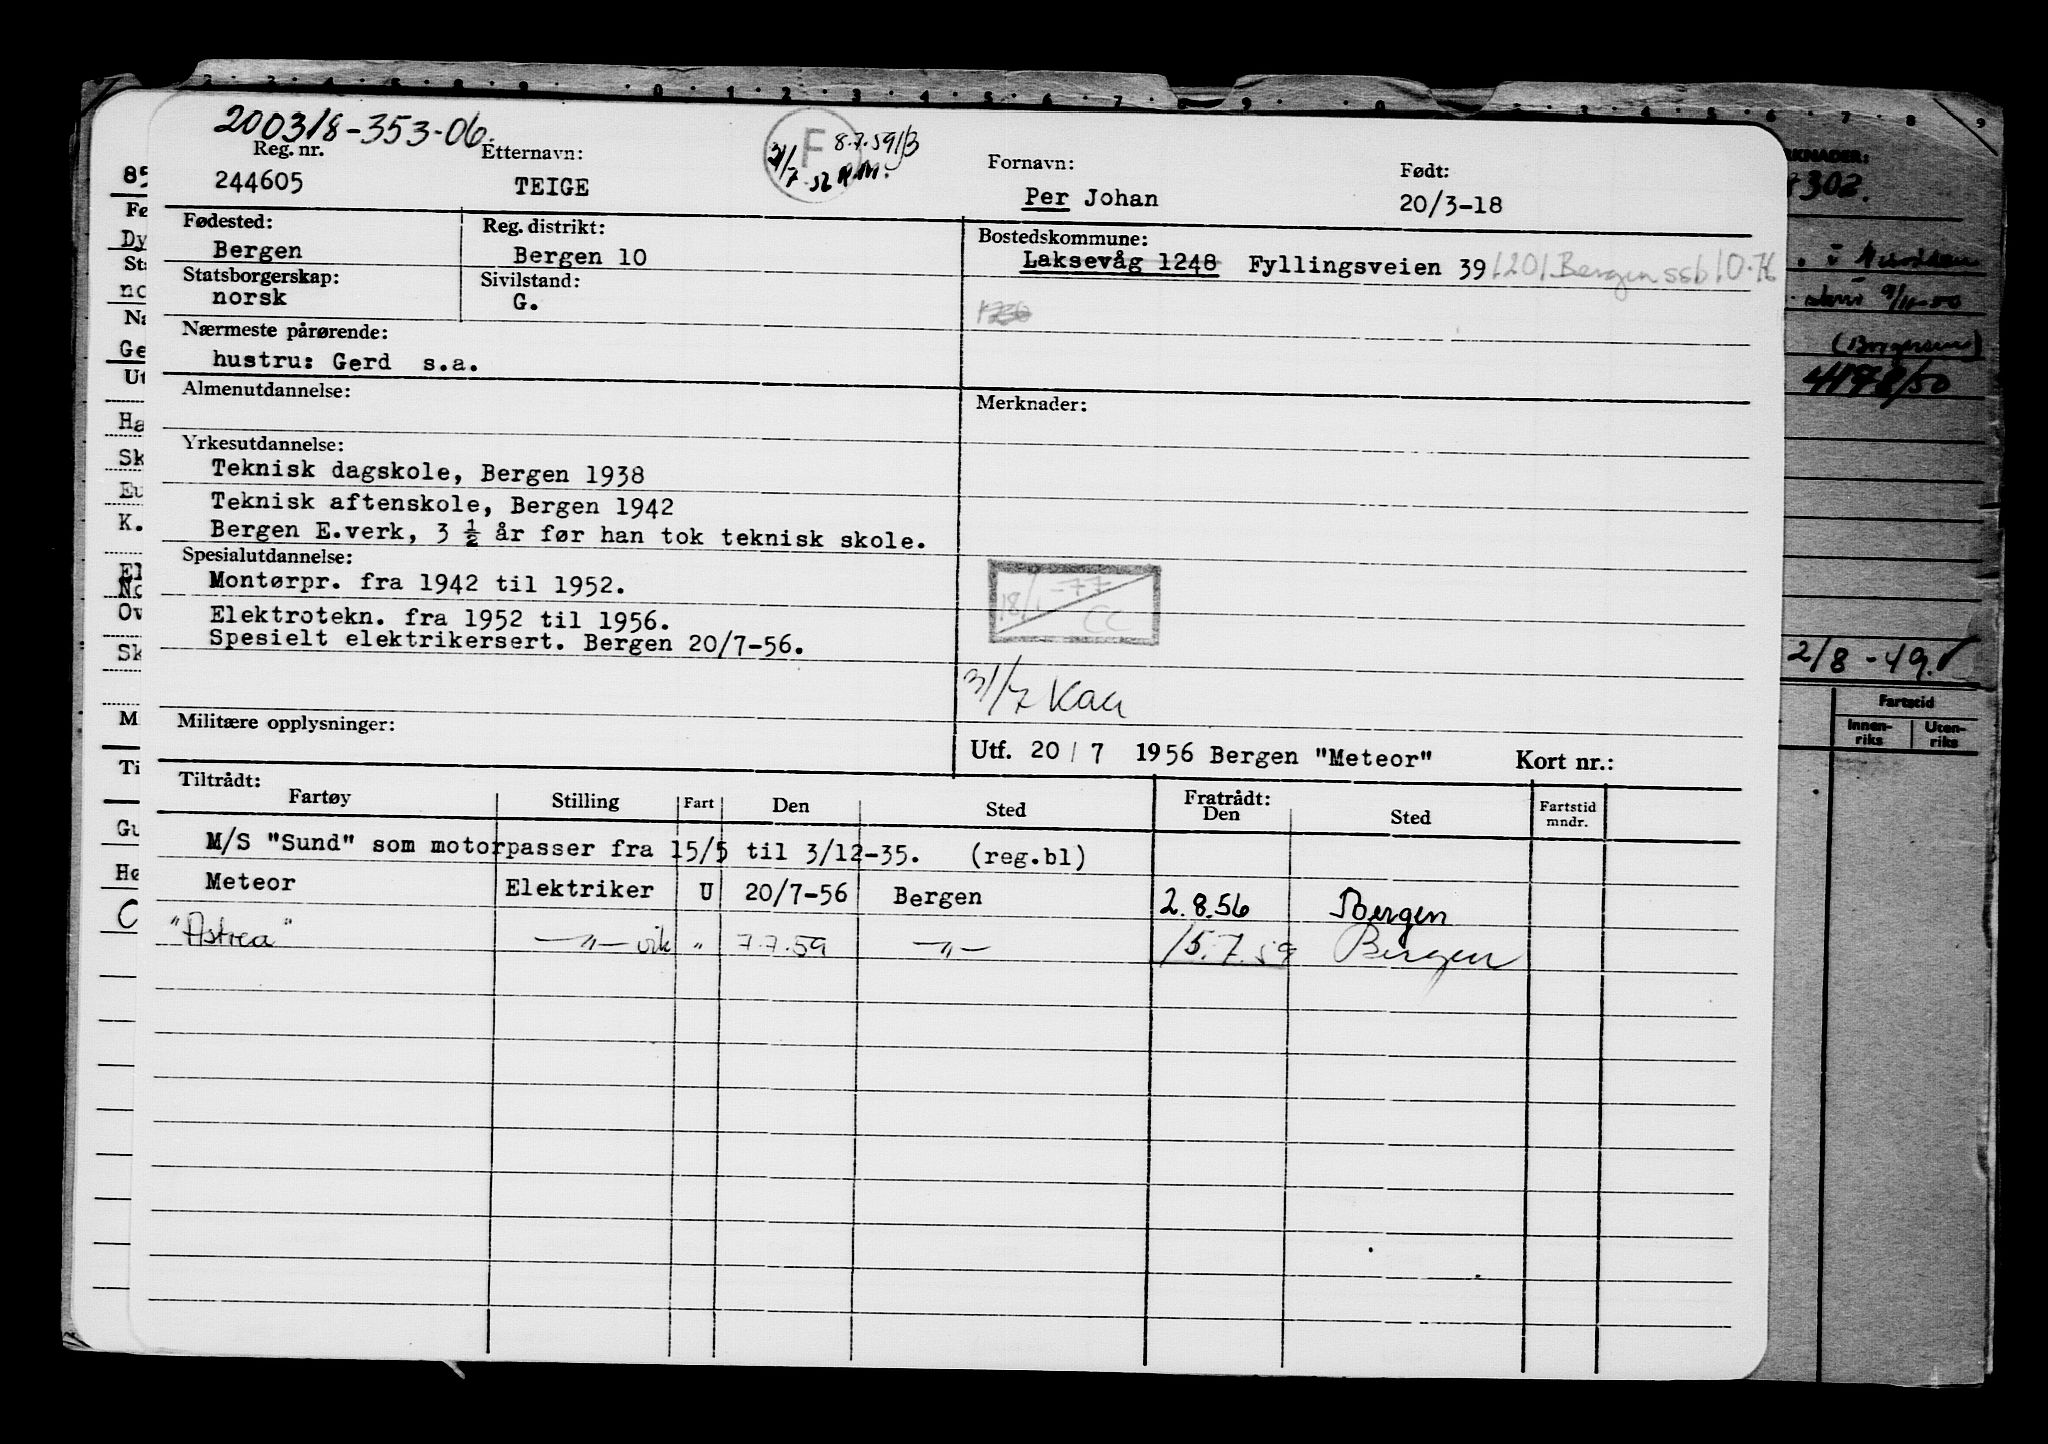 200318-353-06.
Reg. nr. Etternavn: F 8.7.59/B Fornavn: Født:
31/7-56 RM.
244605 TEIGE Per Johan 20/3-18
Fødested: Reg. distrikt: Bostedskommune:
Bergen Bergen 10 Laksevåg 1248 Fyllingsveien 39 1201 Bergen ssb 10.76
Statsborgerskap: Sivilstand:
norsk G.
Nærmeste pårørende:
hustru: Gerd s.a.
Almenutdannelse: Merknader:
Yrkesutdannelse:
Teknisk dagskole, Bergen 1938
Teknisk aftenskole, Bergen 1942
Bergen E.verk, 3 ½ år før han tok teknisk skole.
Spesialutdannelse:
Montørpr. fra 1942 til 1952.
18/1-77 CC
Elektrotekn. fra 1952 til 1956.
Spesielt elektrikersert. Bergen 20/7-56.
31/7
Militære opplysninger:
Utf. 20/7 1956 Bergen "Meteor" Kort nr.:
Tiltrådt: Fratrådt:
Fartøy Stilling Fart Den Sted Den Sted Fartstid mndr.
M/S "Sund" som motorpasser fra 15/5 til 3/12-35. (reg.bl)
Meteor Elektriker U 20/7-56 Bergen 2.8.56 Bergen
"Astrea" —"— vik " 7.7.59 —"— 15.7.59 Bergen
302.
9/11-50
4178/50
2/8-49.
Fartstid
Innen-riks Uten-riks